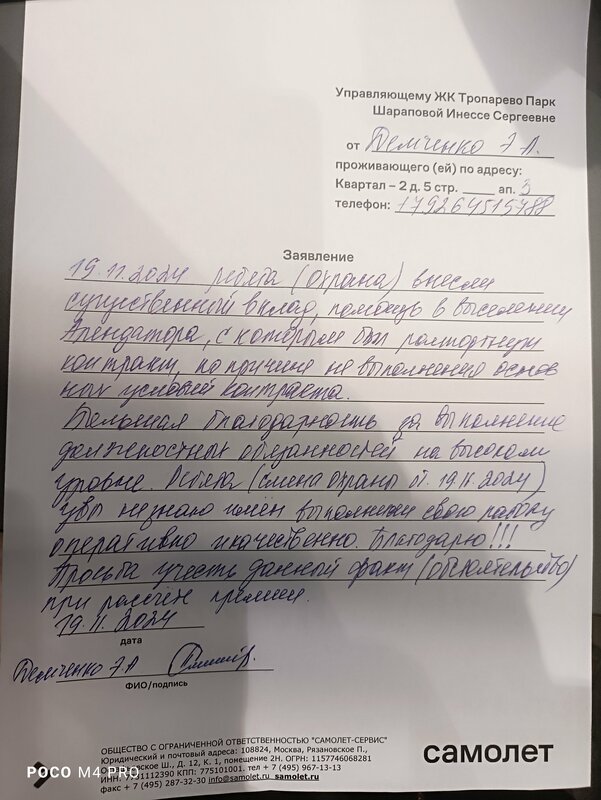 Управляющему ЖК Тропарево Парк
Шараповой Инессе Сергеевне
от Демченко Э А.
проживающего (ей) по адресу:
Квартал – 2 д. 5 стр. ____ ап. 3
телефон: 179264515788
Заявление
19.11.2024 ребята (охрана) внесли
существенный вклад, помощь в выселении
Арендатора, с которым был расторгнут
контракт, по причине не выполнения основ
ных условий контракта.
Большая благодарность за выполнение
должностных обязанностей на высоком
уровне. Ребята (смена охраны от. 19.11.2024)
увы не знаю имён выполнили свою работу
оперативно и качественно. Благодарю!!!
Просьба учесть данный факт (обстоятельство)
при рассчёте премии.
19.11.2024
дата
Демченко Э.А
ФИО/подпись
ОБЩЕСТВО С ОГРАНИЧЕННОЙ ОТВЕТСТВЕННОСТЬЮ "САМОЛЕТ-СЕРВИС"
Юридический и почтовый адреса: 108824, Москва, Рязановское П.,
Ш., Д. 12, К. 1, помещение 2Н. ОГРН: 1157746068281
ИНН: 7751112390 КПП: 775101001. тел + 7 (495) 967-13-13
факс + 7 (495) 287-32-30 info@samolet.ru samolet.ru
самолет
POCO M4 PRO